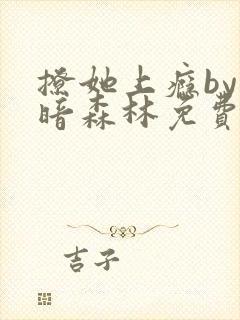 撩她上瘾by
暗森林免費
吉子